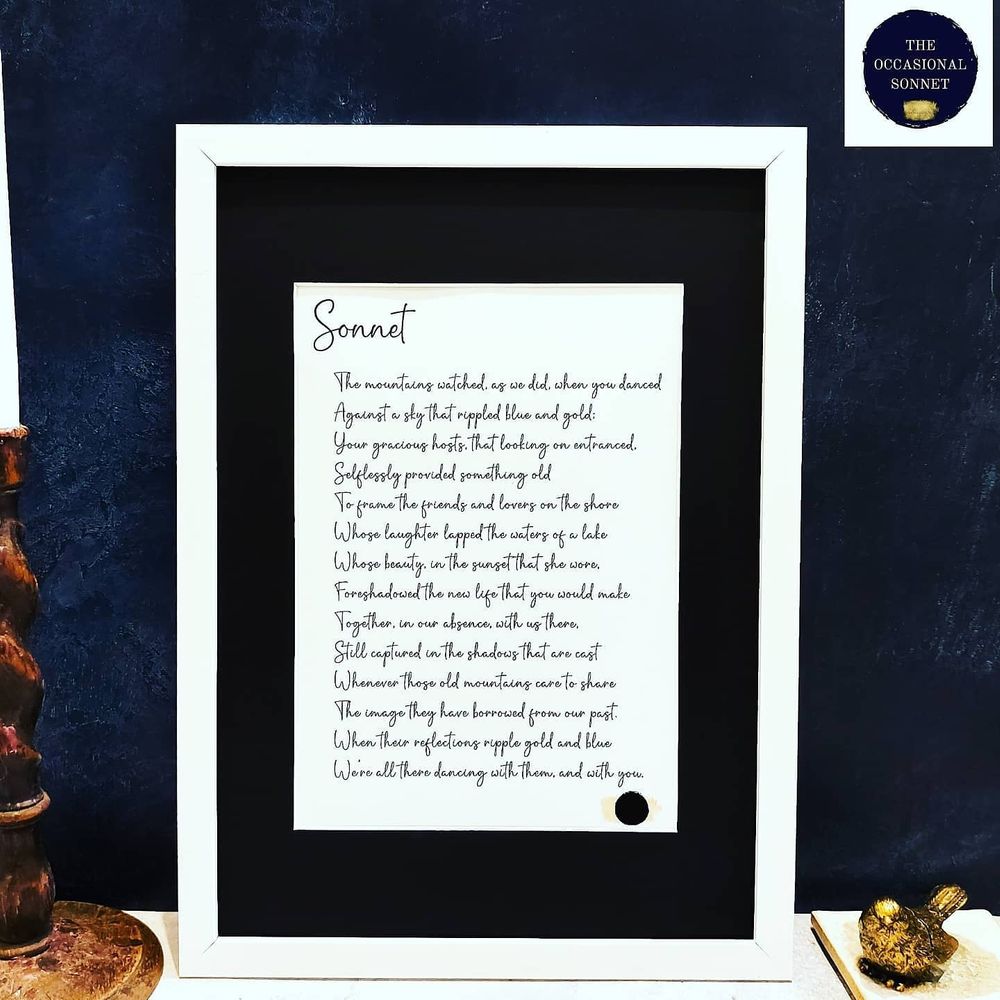 THE
OCCASIONAL
SONNET
Sonnet
The mountains watched, as we did, when you danced
Against a sky that rippled blue and gold;
Your gracious hosts, that looking on entranced,
Selflessly provided something old
To frame the friends and lovers on the shore
Whose laughter lapped the waters of a lake
Whose beauty, in the sunset that she wore,
Foreshadowed the new life that you would make
Together, in our absence, with us there,
Still captured in the shadows that are cast
Whenever those old mountains care to share
The image they have borrowed from our past.
When their reflections ripple gold and blue
We're all there dancing with them, and with you.